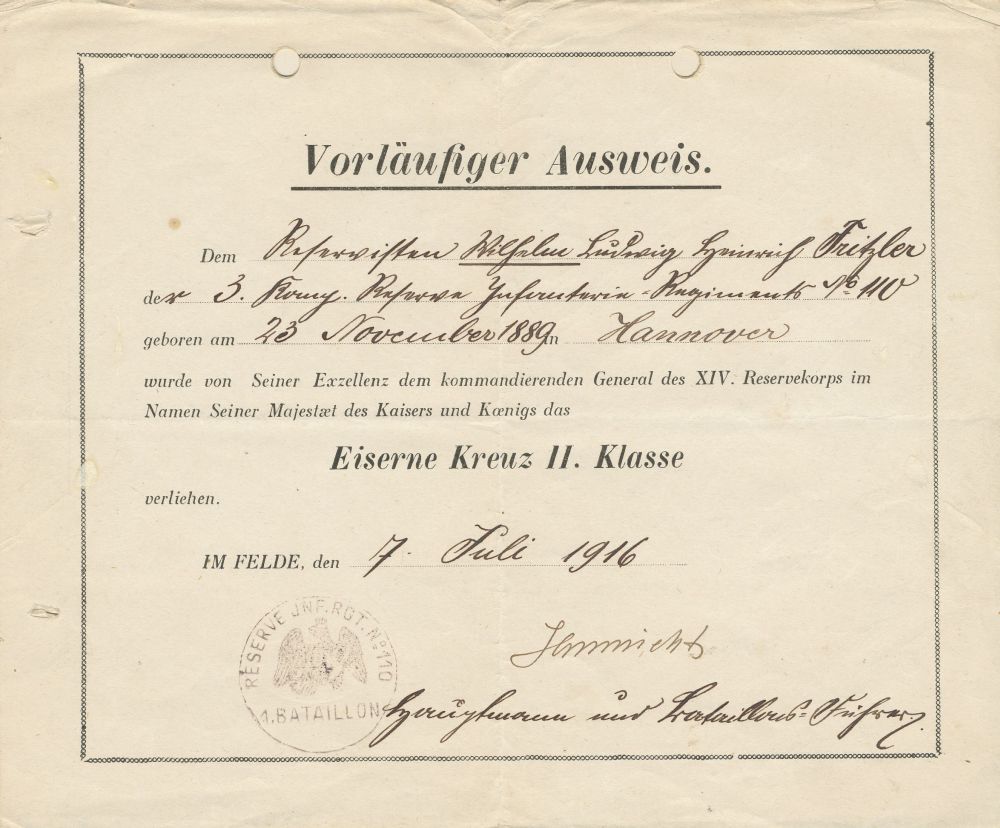 Vorläufiger Ausweis.
Dem Reservisten Wilhelm Ludwig Heinrich Fritzler
der 3. Komp. Reserve Infanterie-Regiments No 110
geboren am 23 November 1889 in Hannover
wurde von Seiner Exzellenz dem kommandierenden General des XIV. Reservekorps im
Namen Seiner Majestæt des Kaisers und Kœnigs das
Eiserne Kreuz II. Klasse
verliehen.
IM FELDE, den 7. Juli 1916
RESERVE JNF. RGT. No 110
1. BATAILLON
Hauptmann und Bataillons-Führer.